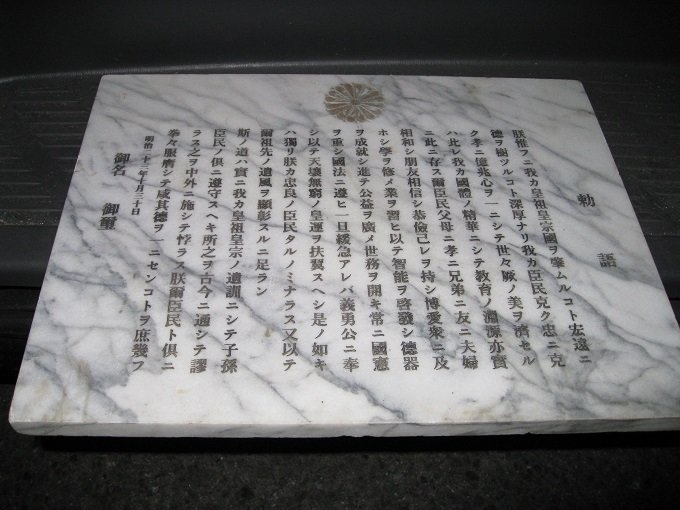 勅語
朕惟フニ我カ皇祖皇宗國ヲ肇ムルコト宏遠ニ
德ヲ樹ツルコト深厚ナリ我カ臣民克ク忠ニ克
ク孝ニ億兆心ヲ一ニシテ世々厥ノ美ヲ濟セル
ハ此レ我カ國體ノ精華ニシテ教育ノ淵源亦實
ニ此ニ存ス爾臣民父母ニ孝ニ兄弟ニ友ニ夫婦
相和シ朋友相信シ恭儉己レヲ持シ博愛衆ニ及
ホシ學ヲ修メ業ヲ習ヒ以テ智能ヲ啓發シ德器
ヲ成就シ進テ公益ヲ廣メ世務ヲ開キ常ニ國憲
ヲ重シ國法ニ遵ヒ一旦緩急アレバ義勇公ニ奉
シ以テ天壤無窮ノ皇運ヲ扶翼スヘシ是ノ如キ
ハ獨リ朕カ忠良ノ臣民タルノミナラス又以テ
爾祖先ノ遺風ヲ顯彰スルニ足ラン
斯ノ道ハ實ニ我カ皇祖皇宗ノ遺訓ニシテ子孫
臣民ノ俱ニ遵守スヘキ所之ヲ古今ニ通シテ謬
ラス之ヲ中外ニ施シテ悖ラス朕爾臣民ト俱ニ
拳々服膺シテ咸其德ヲ一ニセンコトヲ庶幾フ
明治二十三年十月三十日
御名 御璽